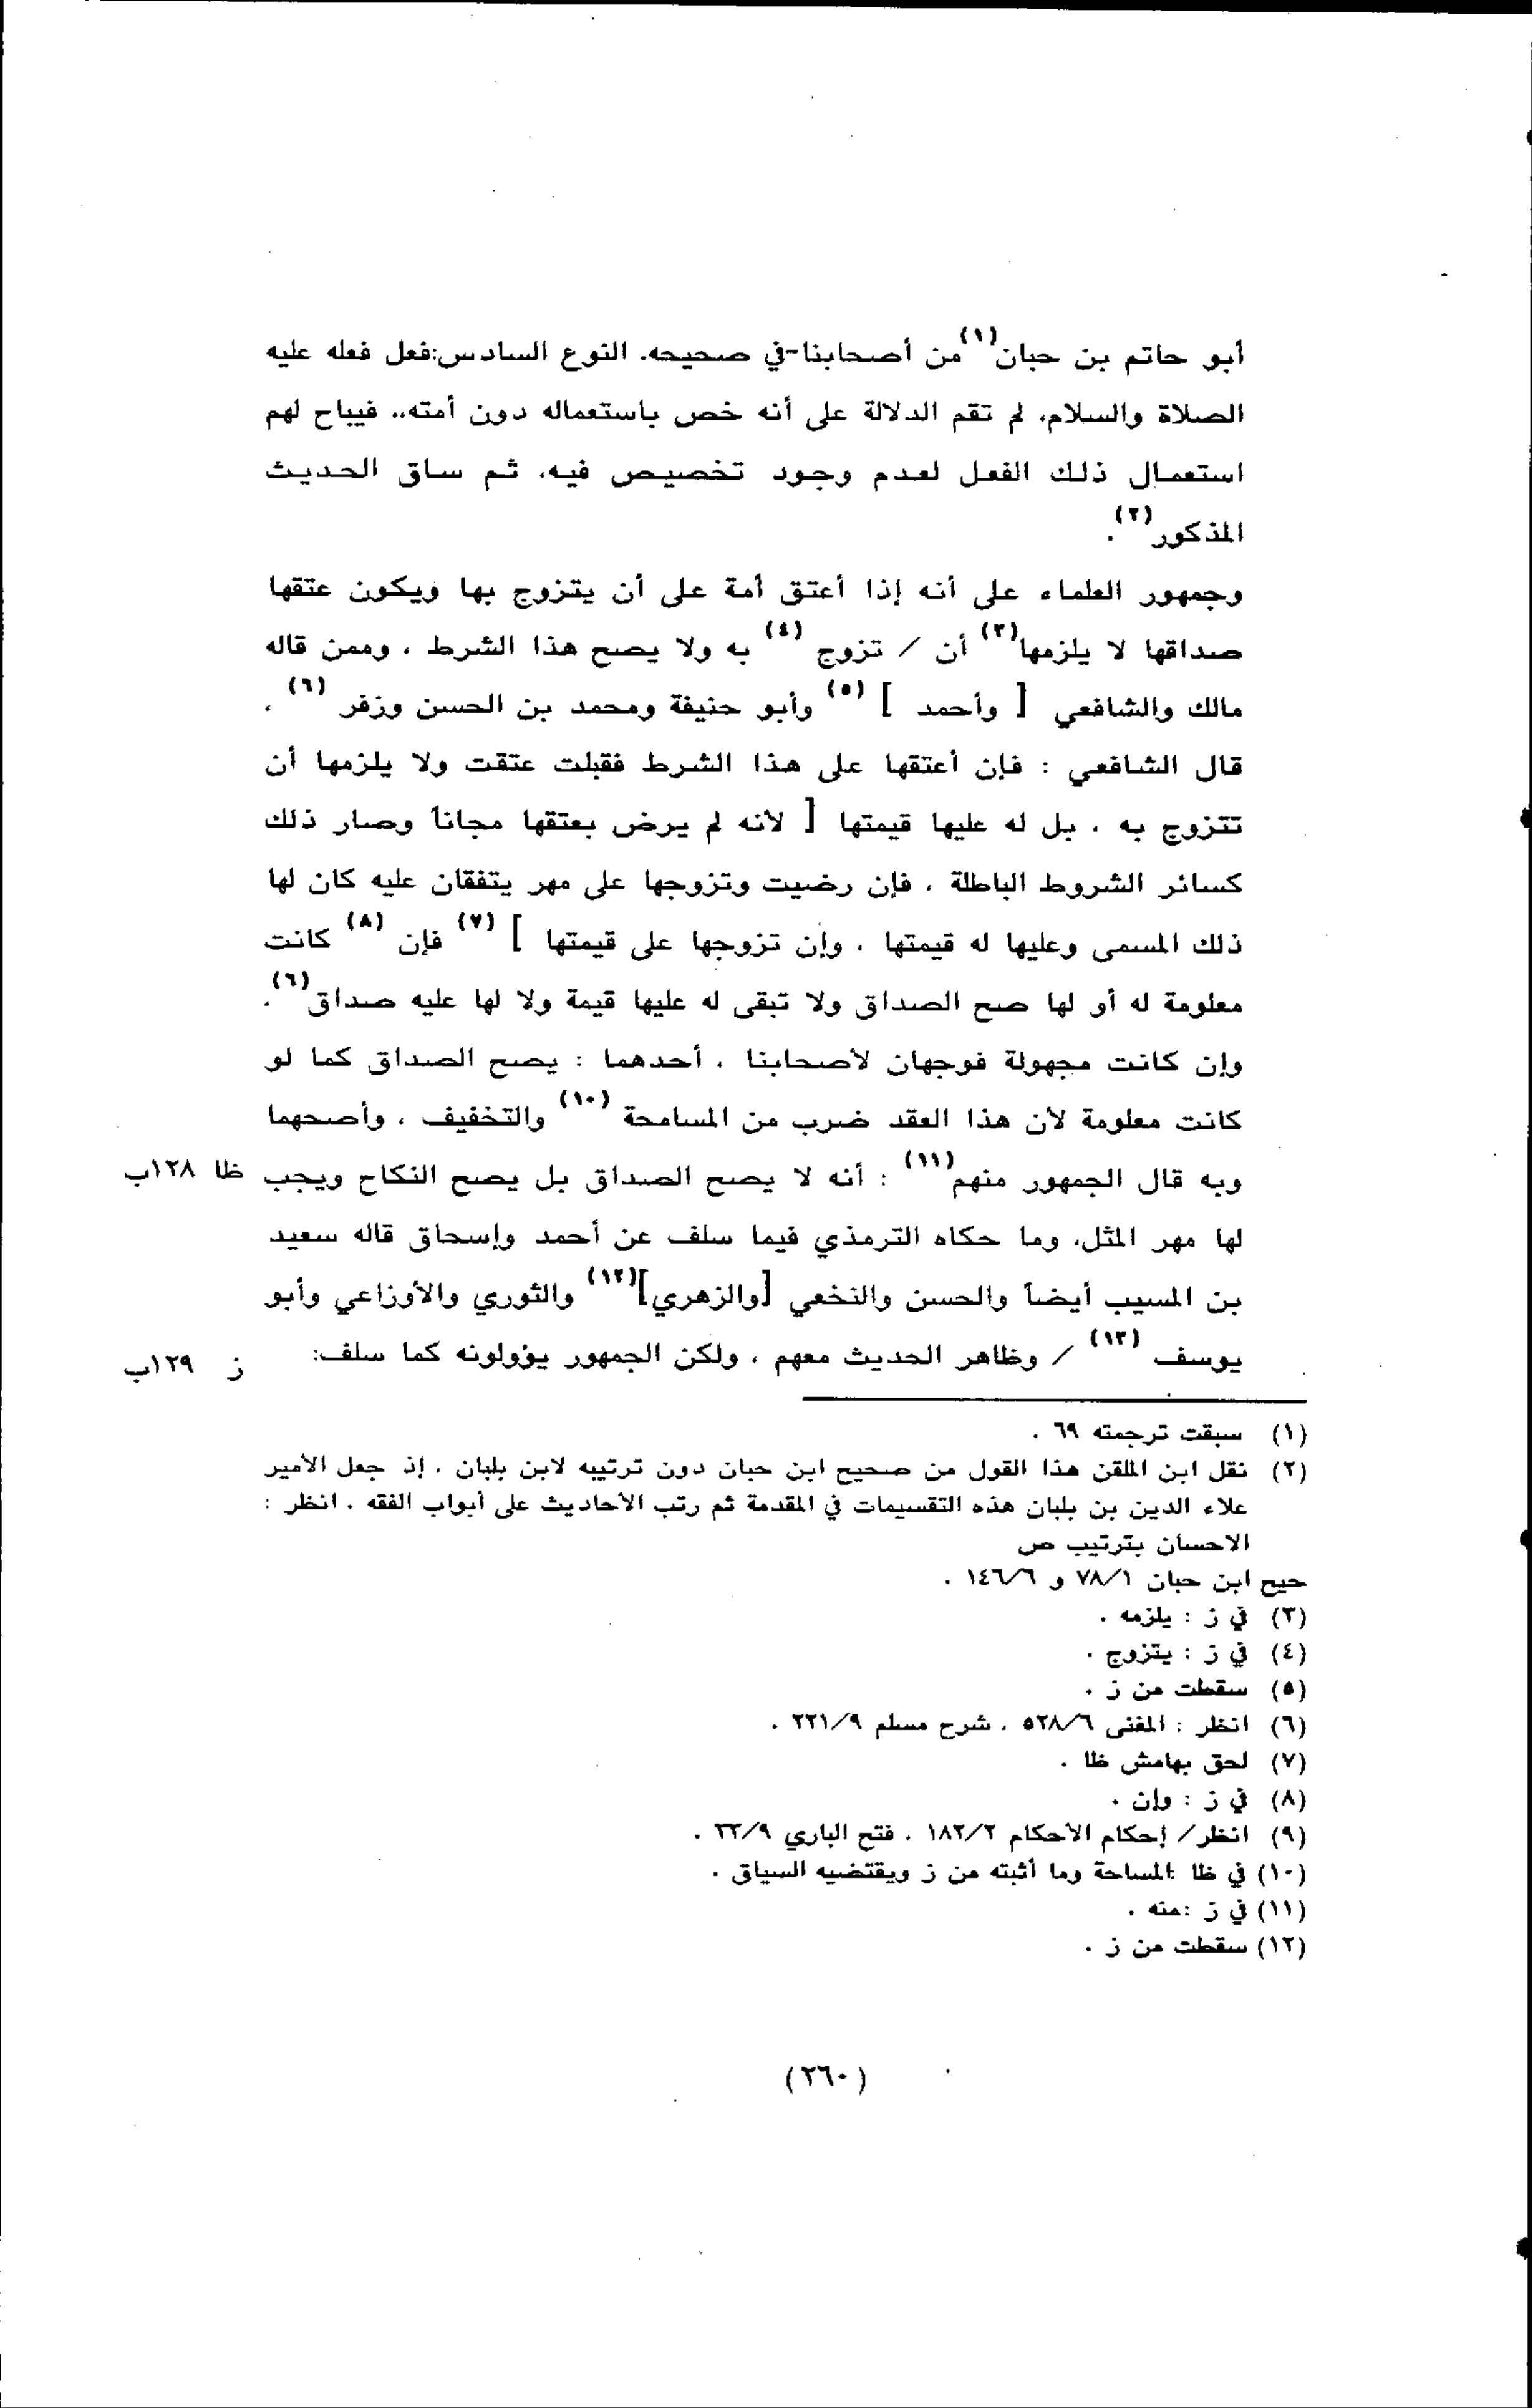 أبو حاتم بن حبان(١)من أصحابنا-في صحيحه. النوع السادس:فعل فعله عليه
الصلاة والسلام، لم تقم الدلالة على أنه خص باستعماله دون أمته.. فيباح لهم
استعمال ذلك الفعل لعدم وجود تخصيص فيه، ثم ساق الحديث
المذكور(٢).
وجمهور العلماء على أنه إذا أعتق أمة على أن يتزوج بها ويكون عتقها
صداقها لا يلزمها(٣) أن / تزوج (٤) به ولا يصح هذا الشرط ، وممن قاله
مالك والشافعي [ وأحمد ] (٥) وأبو حنيفة ومحمد بن الحسن وزفر (٦) .
قال الشافعي : فإن أعتقها على هذا الشرط فقبلت عتقت ولا يلزمها أن
تتزوج به ، بل له عليها قيمتها [ لأنه لم يرض بعتقها مجاناً وصار ذلك
كسائر الشروط الباطلة ، فإن رضيت وتزوجها على مهر يتفقان عليه كان لها
ذلك المسمى وعليها له قيمتها ، وإن تزوجها على قيمتها ] (٧) فإن (٨) كانت
معلومة له أو لها صح الصداق ولا تبقى له عليها قيمة ولا لها عليه صداق(٦).
وإن كانت مجهولة فوجهان لأصحابنا ، أحدهما : يصح الصداق كما لو
كانت معلومة لأن هذا العقد ضرب من المسامحة (١٠) والتخفيف ، وأصحهما
وبه قال الجمهور منهم(١١) : أنه لا يصح الصداق بل يصح النكاح ويجب ظا ١٢٨ب
لها مهر المثل، وما حكاه الترمذي فيما سلف عن أحمد وإسحاق قاله سعيد
بن المسيب أيضاً والحسن والنخعي [والزهري](١٢) والثوري والأوزاعي وأبو
يوسف (١٣) / وظاهر الحديث معهم ، ولكن الجمهور يؤولونه كما سلف: ز ١٢٩ب
(١) سبقت ترجمته ٦٩ .
(٢) نقل ابن الملقن هذا القول من صحيح ابن حبان دون ترتيبه لابن بلبان ، إذ جعل الأمير
علاء الدين بن بلبان هذه التقسيمات في المقدمة ثم رتب الأحاديث على أبواب الفقه . انظر :
الاحسان بترتيب ص
حيح ابن حبان ٧٨/١ و ١٤٦/٦ .
(٣) في ز : يلزمه .
(٤) في ز : يتزوج .
(٥) سقطت من ز .
(٦) انظر : المغنى ٥٢٨/٦ ، شرح مسلم ٢٢١/٩ .
(٧) لحق بهامش ظا .
(٨) في ز : وإن .
(٩) انظر/ إحكام الأحكام ١٨٢/٢ ، فتح الباري ٣٢/٩ .
(١٠) في ظا :المساحة وما أثبته من ز ويقتضيه السياق .
(١١) في ز :منه .
(١٢) سقطت من ز .
(٢٦٠)